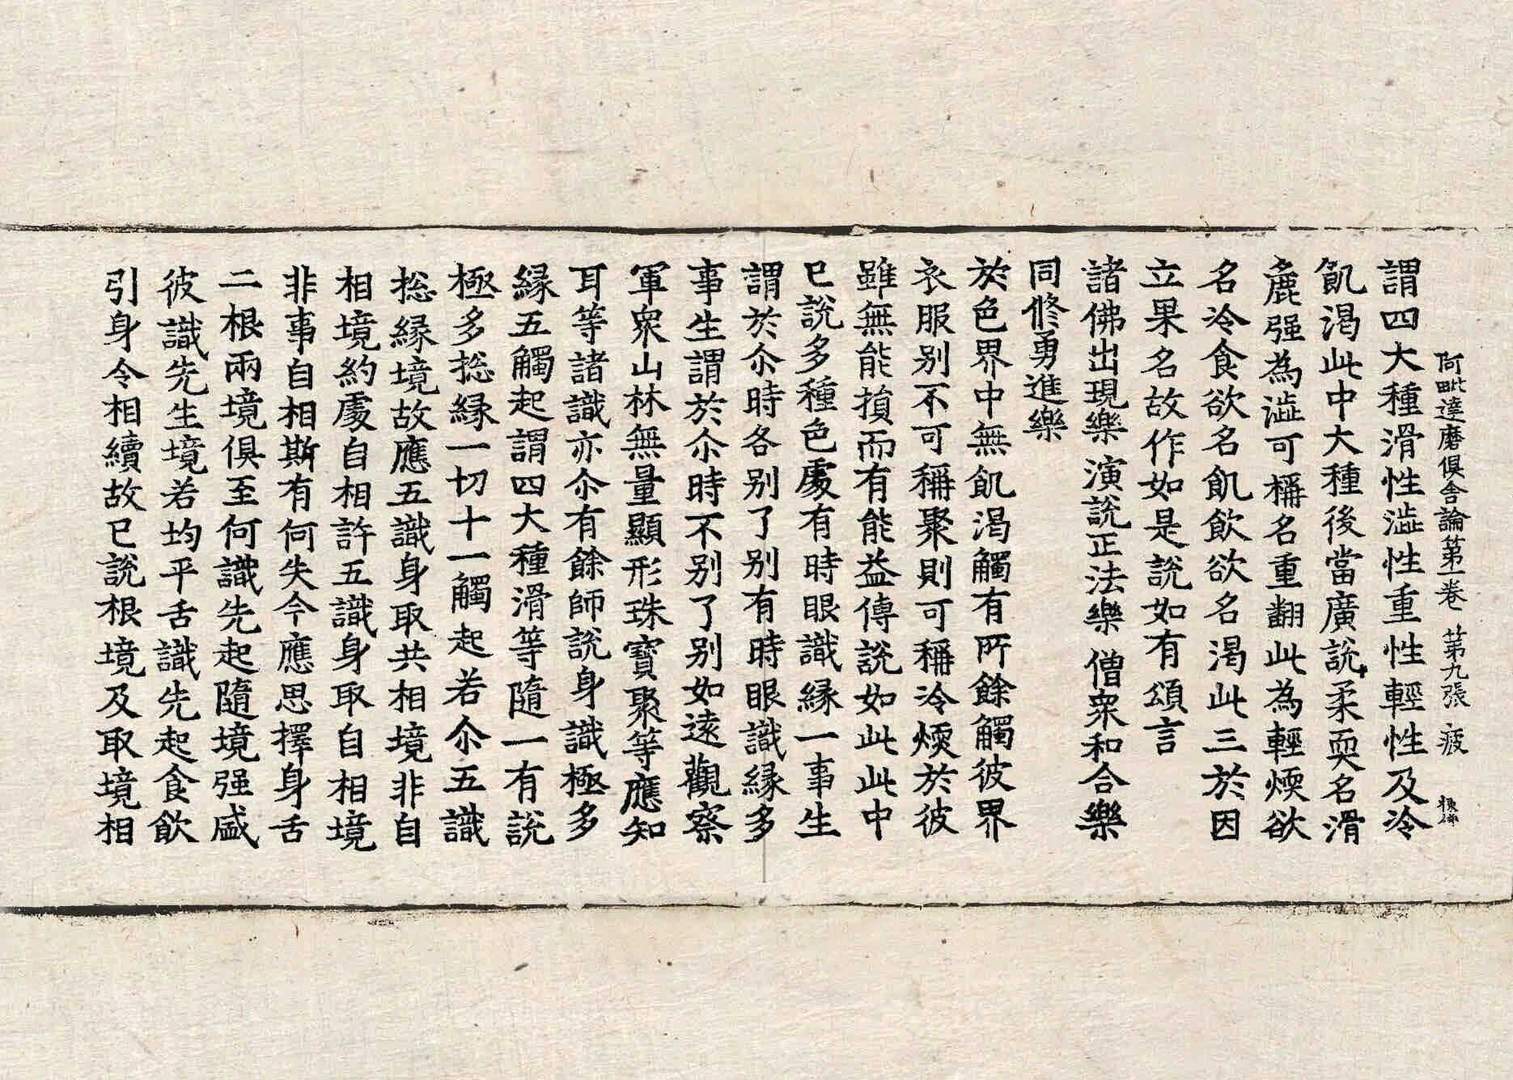 阿毗達磨俱舍論第一卷 第九張 疲
謂四大種滑性澁性重性輕性及冷
飢渴此中大種後當廣說柔耎名滑
麁强為澁可稱名重翻此為輕煗欲
名冷食欲名飢飲欲名渴此三於因
立果名故作如是說如有頌言
諸佛出現樂 演說正法樂 僧衆和合樂
同修勇進樂
於色界中無飢渴觸有所餘觸彼界
衣服别不可稱聚則可稱冷煗於彼
雖無能損而有能益傳說如此此中
已說多種色處有時眼識緣一事生
謂於尒時各别了别有時眼識緣多
事生謂於尒時不别了别如遠觀察
軍衆山林無量顯形珠寶聚等應知
耳等諸識亦尒有餘師說身識極多
緣五觸起謂四大種滑等隨一有說
極多惣緣一切十一觸起若尒五識
惣緣境故應五識身取共相境非自
相境約處自相許五識身取自相境
非事自相斯有何失今應思擇身舌
二根兩境俱至何識先起隨境强盛
彼識先生境若均平舌識先起食飲
引身令相續故已說根境及取境相